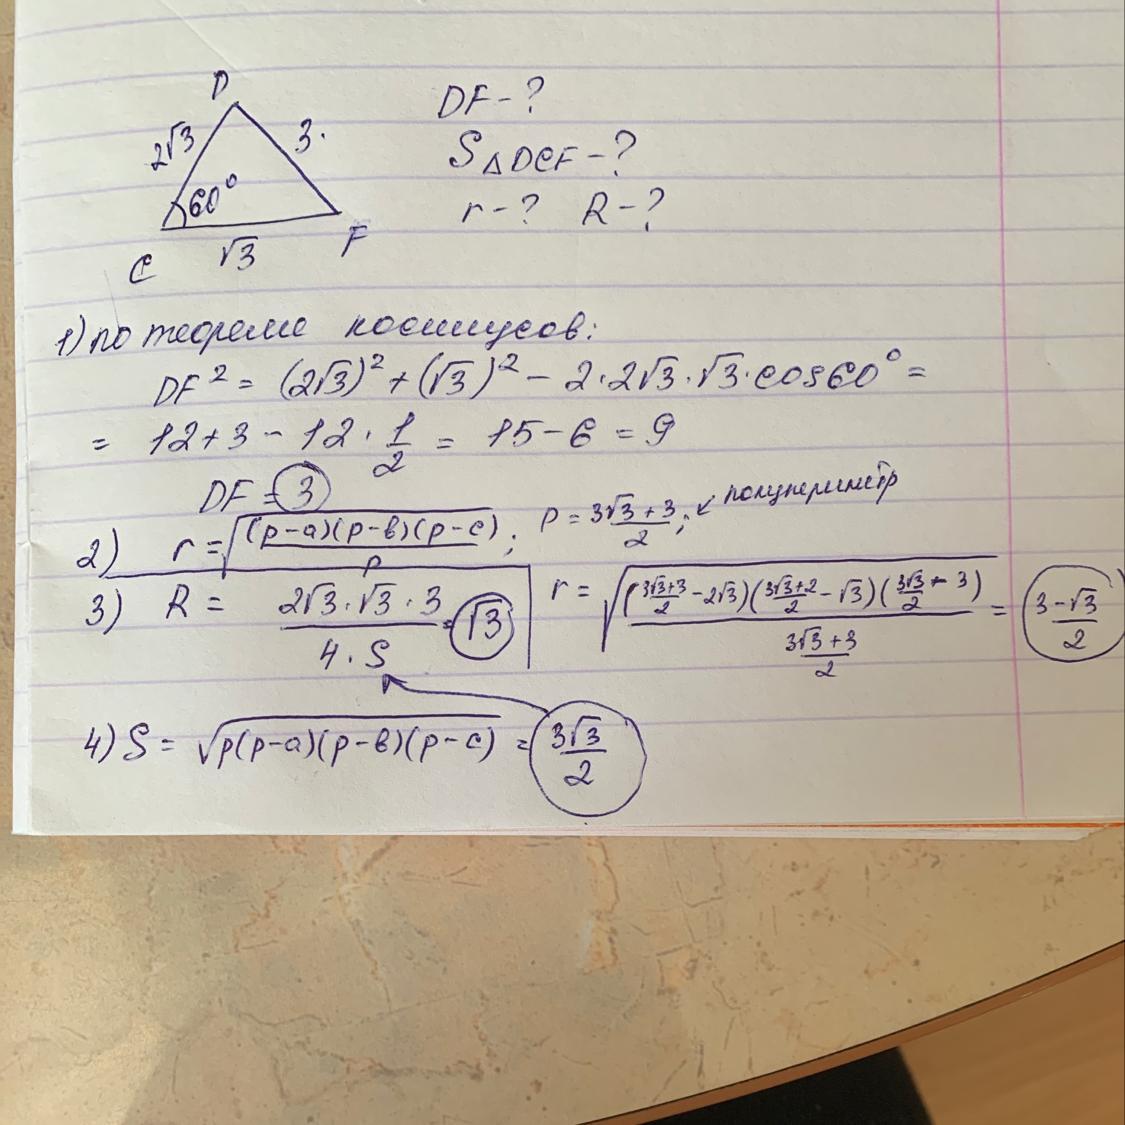 D
2√3
3.
60°
C
√3
F
DF-?
S△DCF-?
r-? R-?
1) по теореме косинусов:
DF² = (2√3)² + (√3)² - 2·2√3·√3·cos60° =
= 12+3 - 12·1/2 = 15-6 = 9
DF = 3
2) r = √((p-a)(p-в)(p-c)/p); p = (3√3+3)/2; ↙ полупериметр
r = √(((3√3+3)/2 - 2√3)((3√3+2)/2 - √3)((3√3)/2 - 3)/((3√3+3)/2)) = (3-√3)/2
3) R = (2√3·√3·3)/(4·S) = √3
4) S = √(p(p-a)(p-в)(p-c)) = (3√3)/2